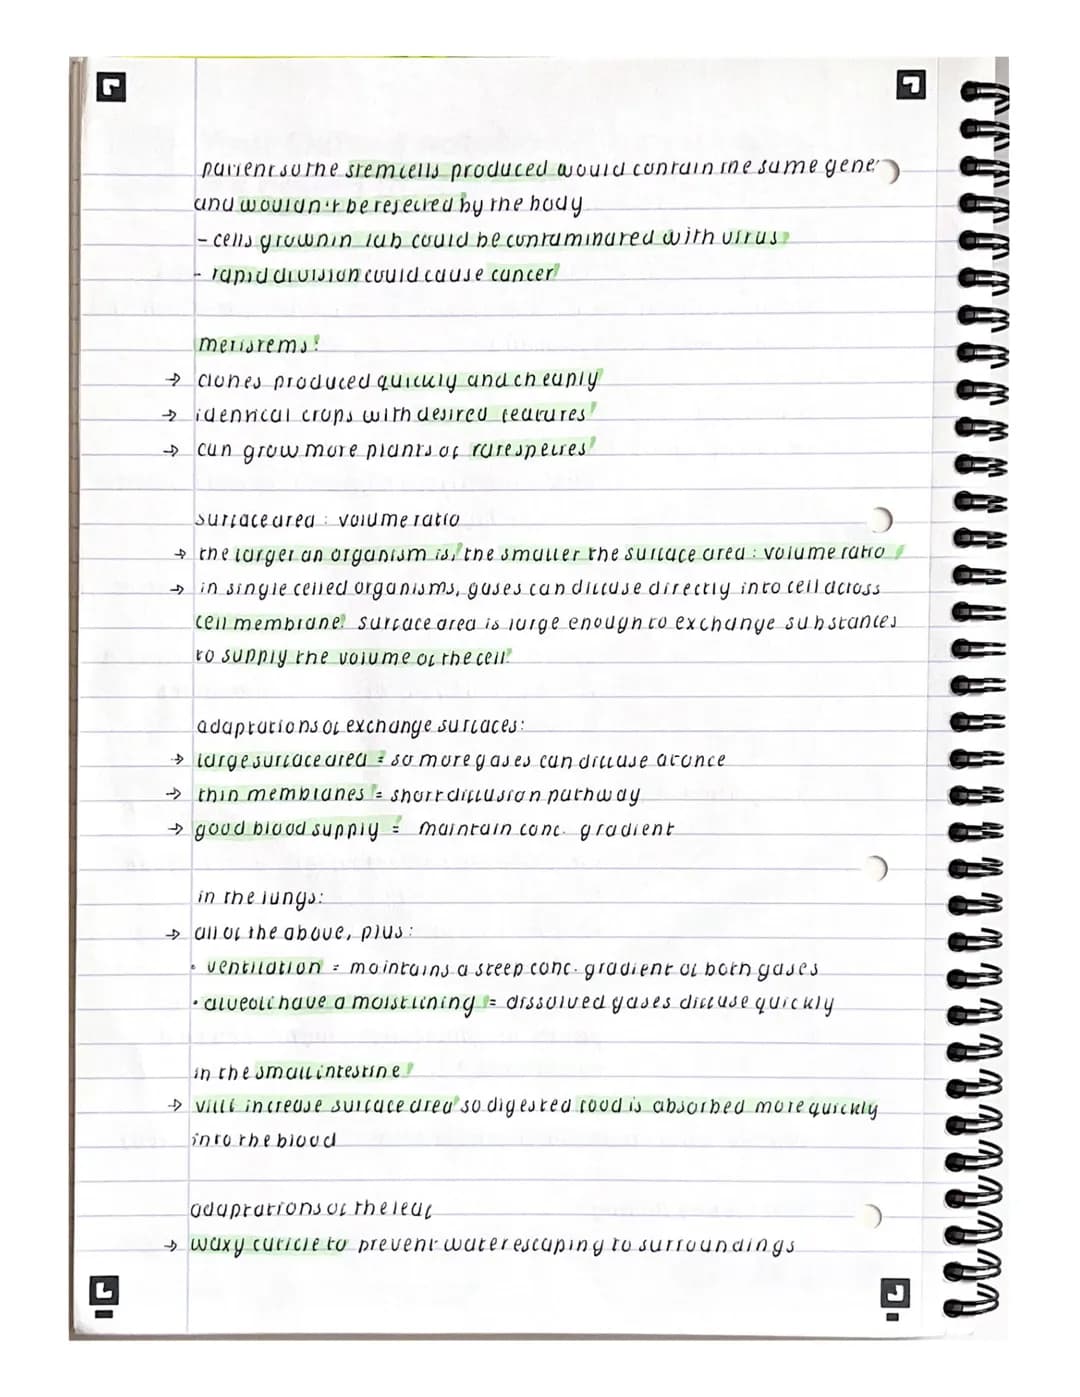 patient so the stem cells produced would contain the same gene
and wouldn't be rejected by the body
- cells grown in lab could be contaminated with virus
- rapid division could cause cancer
meristems:
→ clones produced quickly and cheaply
→ identical crops with desired features
→ can grow more plants of rare species
surface area : volume ratio
→ the larger an organism is, the smaller the surface area : volume ratio
→ in single celled organisms, gases can diffuse directly into cell across
cell membrane. surface area is large enough to exchange substances
to supply the volume of the cell.
adaptations of exchange surfaces:
→ large surface area = so more gases can diffuse at once
→ thin membranes = short diffusion pathway
→ good blood supply = maintain conc. gradient
in the lungs:
→ all of the above, plus:
• ventilation = maintains a steep conc. gradient of both gases
• alveoli have a moist lining = dissolved gases diffuse quickly
in the small intestine
→ villi increase surface area so digested food is absorbed more quickly
into the blood
adaptations of the leaf
→ waxy cuticle to prevent water escaping to surroundings